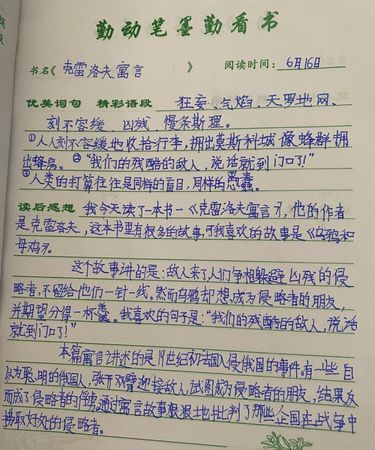 勤动笔墨勤看书
书名《克雷洛夫寓言》 阅读时间：6月16日
优美词句 精彩语段 狂妄、气焰、天罗地网、
刻不容缓、凶残、慢条斯理。
①人人刻不容缓地收拾行李，拥出莫斯科城像蜂群拥
出蜂房。②"我们的残酷的敌人，说话就到门口了！"
③人类的打算往往是同样的盲目，同样的愚蠢。
读后感想 我今天读了一本书-《克雷洛夫寓言》，他的作者
是克雷洛夫，这本书里有很多的故事，可我喜欢的故事是《乌鸦和
母鸡》。
这个故事讲的是：敌人来了人们争相躲避凶残的侵
略者，不留给他们一针一线。然而乌鸦却想成为侵略者的朋友，
并期望分得一杯羹。我喜欢的句子是："我们的残酷的敌人，说话
就到门口了！"
本篇寓言讲述的是19世纪初法国入侵俄国的事件，有一些自
以为聪明的俄国人，张开双臂迎接敌人试图成为侵略者的朋友，结果反
而成了侵略者的俘虏，通过寓言故事狠狠地批判了那些企图在战争中
攫取好处的侵略者。